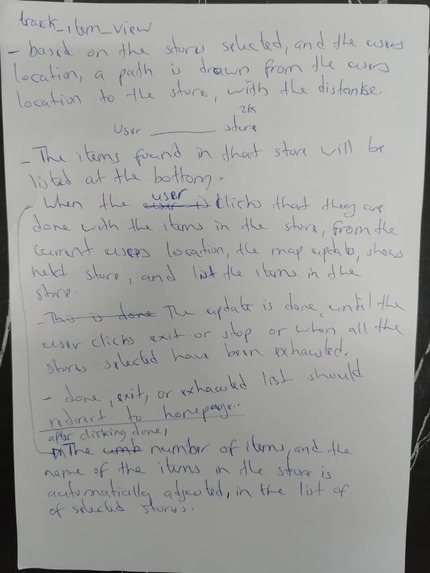 track_item_view
- based on the stores selected, and the users
location, a path is drawn from the users
location to the store, with the distance.
2k
User ______ store
- The items found in that store will be
listed at the bottom.
- When the user clicks that they are
done with the items in the store, from the
current users location, the map updates, shows
next store, and list the items in the
store.
- This is done The update is done, until the
user clicks exit or stop or when all the
stores selected have been exhausted.
- done, exit, or exhausted list should
redirect to homepage.
after clicking done,
The number of items, and the
name of the items in the store is
automatically adjusted, in the list of
of selected stores.